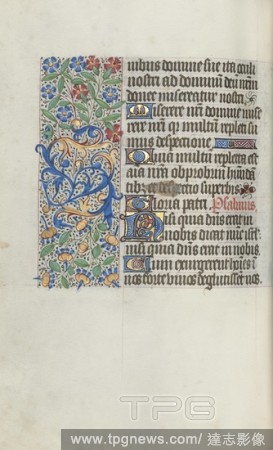 nibus domine sue ita oculi
nostri ad dominum deum nr̄m
donec misereatur nostri.
Miserere nr̄i domine mise
rere nr̄i qr multū repleti su
mus despectione.
Quia multū repleta est
aīa nr̄a obprobriū habūdā
tibus et despectio superbis
Gloria patri. Psalmus.
Nisi quia dn̄s erat in
nobis dicat nūc israel
nisi quia dn̄s erat in nobis.
Cum exurgerent hoīes ī
nos forte viuos deglutissent nos.
TPG
www.tpgnews.com/ 達志影像